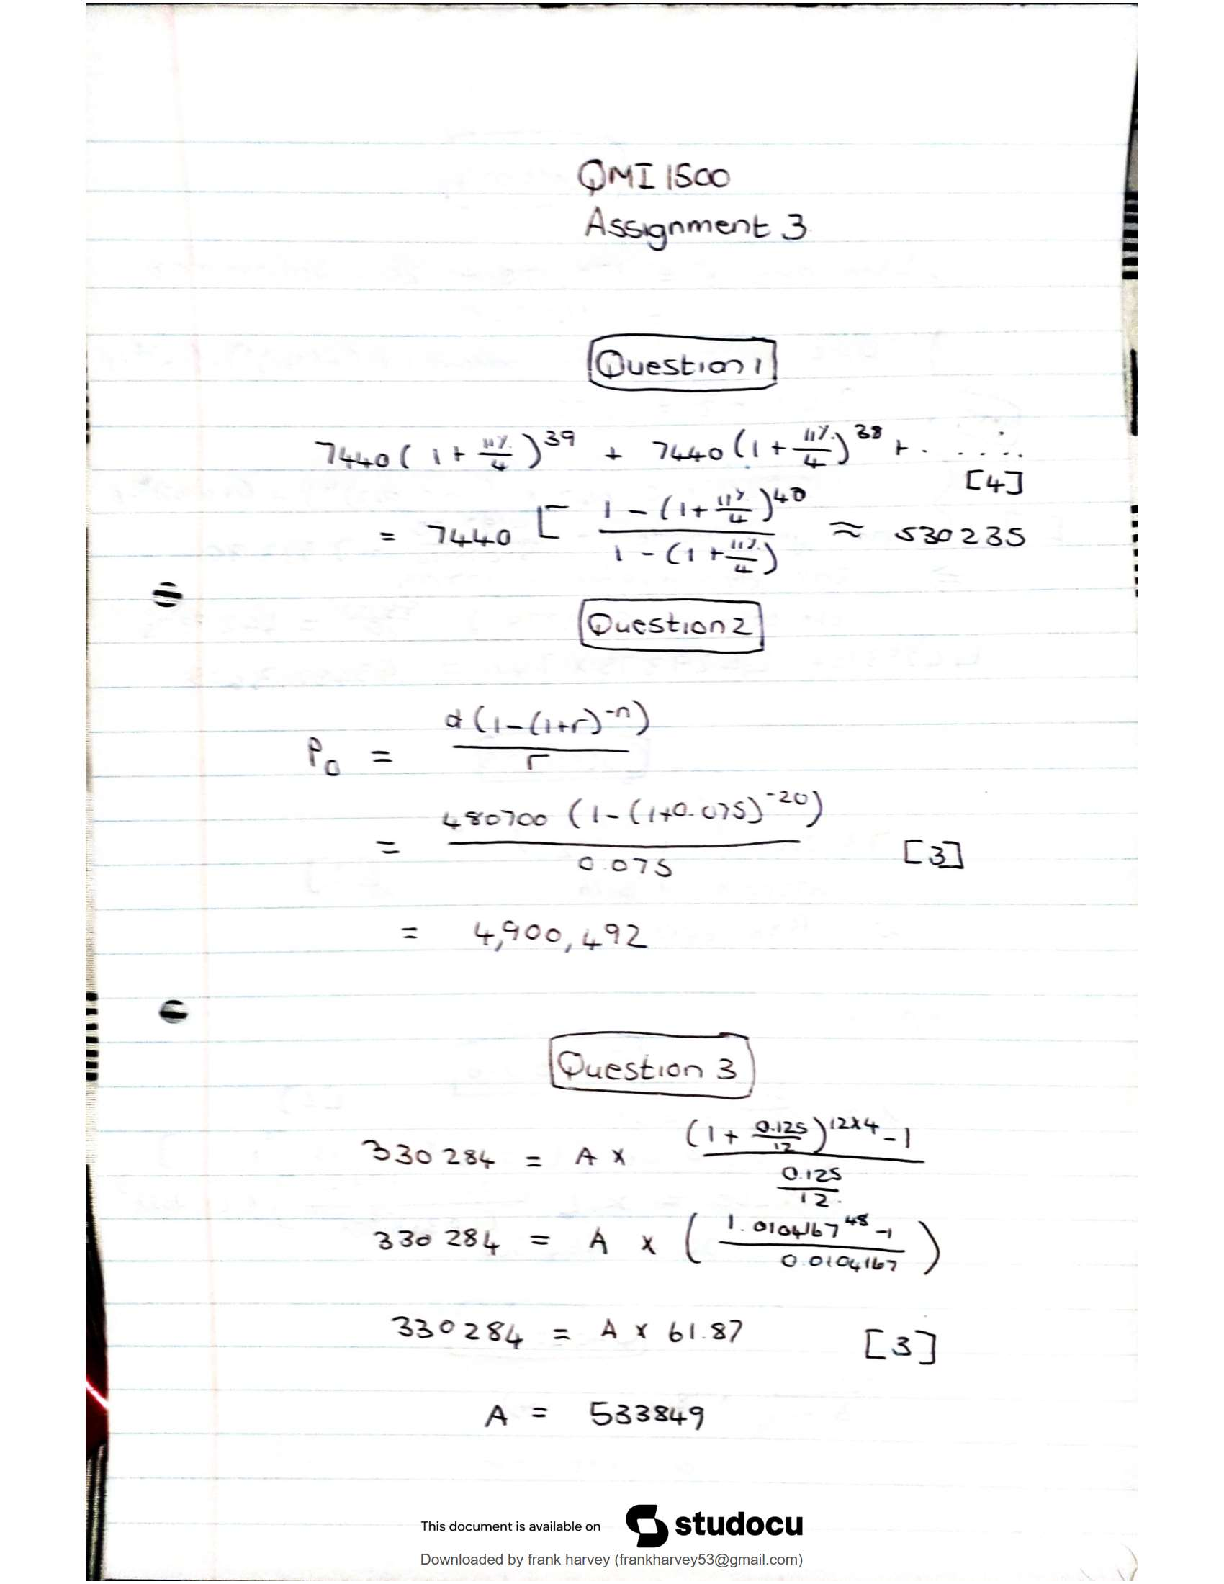 QMI 1500
Assignment 3
Question 1
7440 ( 1 + 11%/4 )^39 + 7440 ( 1 + 11%/4 )^38 + . . . . .
[4]
= 7440 [ (1 - (1 + 11%/4)^40) / (1 - (1 + 11%/4)) ≈ 530235
Question 2
P_0 = d (1 - (1+r)^-n) / r
= 480700 (1 - (1+0.075)^-20) / 0.075 [3]
= 4,900,492
Question 3
330 284 = A × ((1 + 0.125/12)^12×4 - 1) / (0.125/12)
330 284 = A × ( (1.0104167^48 - 1) / 0.0104167 )
330 284 = A × 61.87 [3]
A = 533849
This document is available on studocu
Downloaded by frank harvey (frankharvey53@gmail.com)